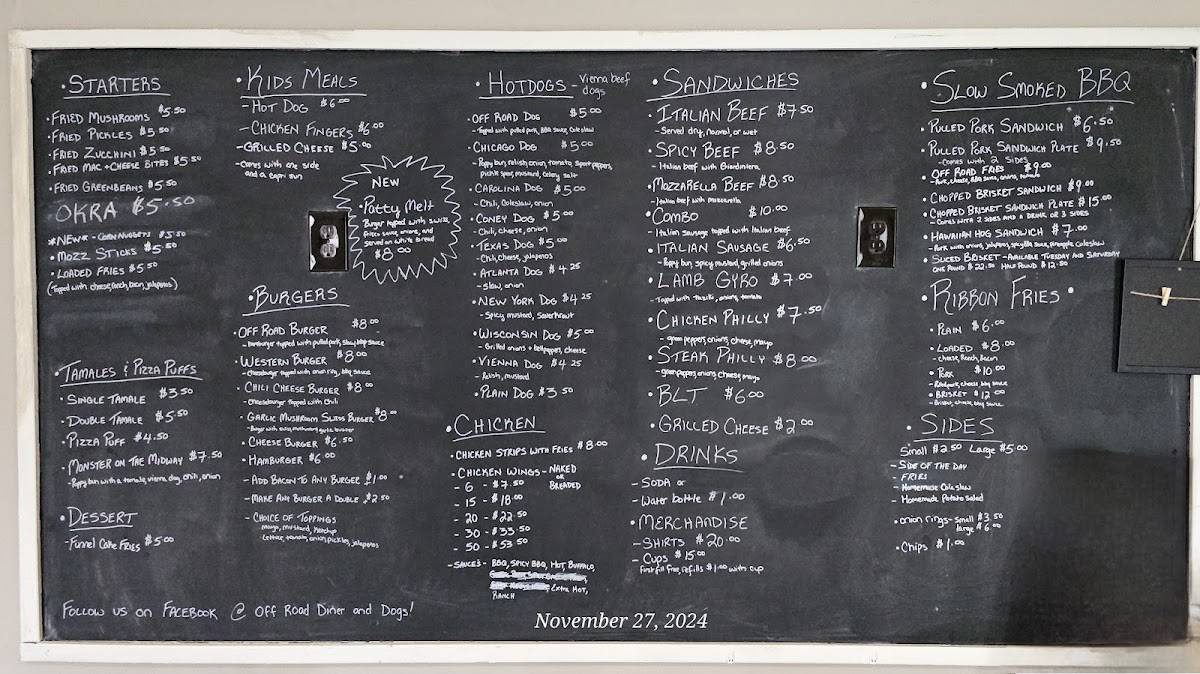 • STARTERS
• FRIED MUSHROOMS $5.50
• FRIED PICKLES $5.50
• FRIED ZUCCHINI $5.50
• FRIED MAC + CHEESE BITES $5.50
• FRIED GREENBEANS $5.50
OKRA $5.50
*NEW* - CORN NUGGETS $5.50
• MOZZ STICKS $5.50
• LOADED FRIES $5.50
(Topped with cheese, ranch, bacon, jalapenos)
• TAMALES & PIZZA PUFFS
• SINGLE TAMALE $3.50
• DOUBLE TAMALE $5.50
• PIZZA PUFF $4.50
• MONSTER ON THE MIDWAY $7.50
- Poppy bun with a tomato, vienna dog, chili, onion
• DESSERT
- Funnel Cake FRIES $5.00
• KIDS MEALS
- HOT DOG $6.00
- CHICKEN FINGERS $6.00
- GRILLED CHEESE $5.00
- Comes with one side
and a capri sun
NEW
• Patty Melt
Burger topped with swiss,
frisco sauce, onions, and
served on white bread
$8.00
• BURGERS
• OFF ROAD BURGER $8.00
- Hamburger topped with pulled pork, slaw, bbq sauce
• WESTERN BURGER $8.00
- Cheeseburger topped with onion ring, bbq sauce
• CHILI CHEESE BURGER $8.00
- Cheeseburger topped with Chili
• GARLIC MUSHROOM SWISS BURGER $8.00
• CHEESE BURGER $6.50
• HAMBURGER $6.00
- ADD BACON TO ANY BURGER $1.00
- MAKE ANY BURGER A DOUBLE $2.50
- CHOICE OF TOPPINGS
- Mayo, mustard, ketchup
Lettuce, tomato, onion, pickles, jalapenos
• HOTDOGS - Vienna beef
dogs
• OFF ROAD DOG $5.00
- Topped with pulled pork, BBQ sauce, Coleslaw
• CHICAGO DOG $5.00
- Poppy bun, relish, onion, tomato, sport peppers,
pickle spear, mustard, celery salt
• CAROLINA DOG $5.00
- Chili, Coleslaw, onion
• CONEY DOG $5.00
- Chili, cheese, onion
• TEXAS DOG $5.00
- Chili, cheese, jalapenos
• ATLANTA DOG $4.25
- Slaw, onion
• NEW YORK DOG $4.25
- Spicy mustard, Sauerkraut
• WISCONSIN DOG $5.00
- Grilled onions + bell peppers, cheese
• VIENNA DOG $4.25
- Relish, mustard
• PLAIN DOG $3.50
• CHICKEN
• CHICKEN STRIPS WITH FRIES $8.00
• CHICKEN WINGS - NAKED
OR
BREADED
- 6 - $7.50
- 15 - $18.00
- 20 - $22.50
- 30 - $33.50
- 50 - $53.50
- SAUCES - BBQ, SPICY BBQ, HOT BUFFALO,
EXTRA HOT,
RANCH
• SANDWICHES
• ITALIAN BEEF $7.50
- Served dry, normal, or wet
• SPICY BEEF $8.50
- Italian beef with Giardiniera
• MOZZARELLA BEEF $8.50
- Italian beef with mozzarella
• COMBO $10.00
- Italian Sausage topped with Italian beef
• ITALIAN SAUSAGE $6.50
- Poppy bun, spicy mustard, grilled onions
• LAMB GYRO $7.00
- Topped with tzatziki, onion, tomato
• CHICKEN PHILLY $7.50
- green peppers, onions, cheese, mayo
• STEAK PHILLY $8.00
- green peppers, onions, cheese, mayo
• BLT $6.00
• GRILLED CHEESE $2.00
• DRINKS
- SODA or
- Water bottle $1.00
• MERCHANDISE
- SHIRTS $20.00
- Cups $15.00
First fill free, refills $1.00 with cup
• SLOW SMOKED BBQ
• PULLED PORK SANDWICH $6.50
• PULLED PORK SANDWICH PLATE $9.50
- Comes with 2 SIDES
• OFF ROAD FRIES $9.00
- Pork, cheese, BBQ sauce, onions, tomato
• CHOPPED BRISKET SANDWICH $9.00
• CHOPPED BRISKET SANDWICH PLATE $15.00
- COMES WITH 2 SIDES AND A DRINK OR 3 SIDES
• HAWAIIAN HOG SANDWICH $7.00
- Pork with onions, jalapenos, sauce, pineapple, coleslaw
• SLICED BRISKET - AVAILABLE TUESDAY AND SATURDAY
ONE POUND $22.50 HALF POUND $12.50
• RIBBON FRIES •
• PLAIN $6.00
• LOADED $8.00
- cheese, Ranch, Bacon
• PORK $10.00
- Pulled pork, cheese, bbq sauce
• BRISKET $12.00
- Brisket, cheese, bbq sauce
• SIDES
Small $2.50 Large $5.00
- SIDE OF THE DAY
- FRIES
- Homemade Coleslaw
- Homemade Potato Salad
• onion rings - small $3.50
large $6.00
• Chips $1.00
FOLLOW US ON FACEBOOK @ OFF ROAD DINER AND DOGS!
November 27, 2024